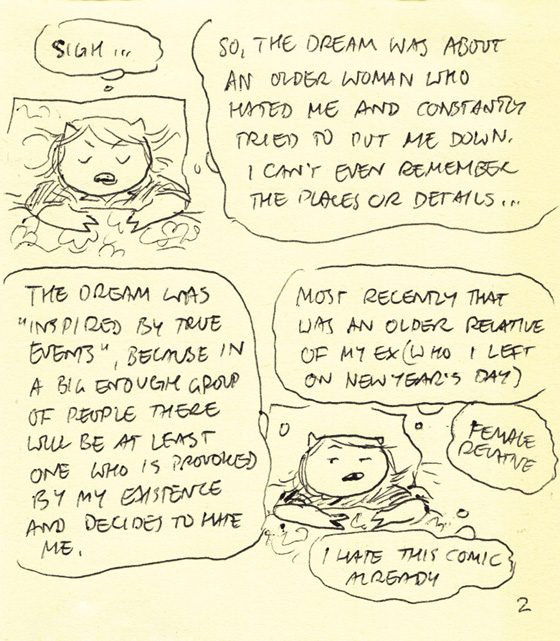 SIGH ...
SO, THE DREAM WAS ABOUT
AN OLDER WOMAN WHO
HATED ME AND CONSTANTLY
TRIED TO PUT ME DOWN.
I CAN'T EVEN REMEMBER
THE PLACES OR DETAILS ...
THE DREAM WAS
"INSPIRED BY TRUE
EVENTS", BECAUSE IN
A BIG ENOUGH GROUP
OF PEOPLE THERE
WILL BE AT LEAST
ONE WHO IS PROVOKED
BY MY EXISTENCE
AND DECIDES TO HATE
ME.
MOST RECENTLY THAT
WAS AN OLDER RELATIVE
OF MY EX (WHO I LEFT
ON NEW YEAR'S DAY)
FEMALE
RELATIVE
I HATE THIS COMIC
ALREADY
2